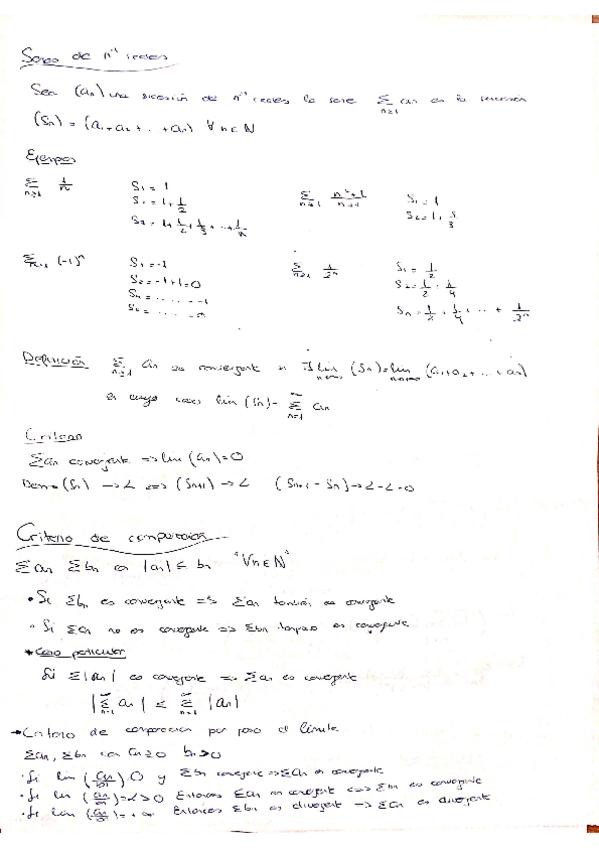 Series de nº reales
Sea (an) una sucesión de nº reales la serie Σn≥1 an es la sucesión
(Sn) = (a1+a2+...+an) ∀n∈N
Ejemplos
Σn≥1 1/n S1 = 1 Σn≥1 n²+1/n+1 S1 = 1
S2 = 1+1/2 S2 = 1+5/3
Sn = 1+1/2+1/3+...+1/n
Σn≥1 (-1)ⁿ S1 = -1 Σn≥1 1/2ⁿ S1 = 1/2
S2 = -1+1=0 S2 = 1/2+1/4
Sn = ...... -1 Sn = 1/2+1/4+...+1/2ⁿ
Definición Σn≥1 an es convergente si ∃ lim n→∞ (Sn)=lim n→∞ (a1+a2+...+an)
en cuyo caso lim (Sn)= Σn=1 ∞ an
Criterio
Σan convergente => lim (an)=0
Dem (Sn) -> L <=> (Sn+1) -> L (Sn+1 - Sn) -> L-L=0
Criterio de comparación
Σan Σbn con |an| ≤ bn "∀n∈N"
• Si Σbn es convergente => Σan también es convergente
• Si Σan no es convergente => Σbn tampoco es convergente
Caso particular
Si Σ|an| es convergente => Σan es convergente
|Σn=1 ∞ an| ≤ Σn=1 ∞ |an|
→Criterio de comparación por paso al límite
Σan, Σbn con an≥0 bn>0
• Si lim (an/bn)=0 y Σbn convergente => Σan es convergente
• Si lim (an/bn)=L>0 Entonces Σan es convergente <=> Σbn es convergente
• Si lim (an/bn)=+∞ Entonces Σbn es divergente => Σan es divergente